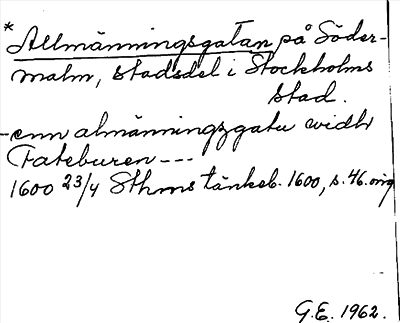 * Allmänningsgatan på Söder-
malm, stadsdel i Stockholms
stad.
-enn almänningzgatu widh
Fateburen ---
1600 23/4 Sthms tänkeb. 1600, s. 46. orig
G.E. 1962.